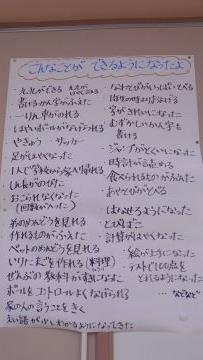 こんなことが できるようになったよ
・九九ができる
・書けるかん字がふえた
・一りん車がのれる
・はやいボールがなげられる
・やきゅう サッカー
・足がはやくなった
・1人で学校から帰り帰れる
・しん長がのびた
・おこられなくなった
(回数がへった)
・弟のめんどうを見れる
・作れるものがふえた
・ペットのめんどうを見れる
・いりたまごを作れる(料理)
・ぜんぶの教科がすきになった
・ボールをコントロールよくなげられる
・家の人の言うことをきく
・えい語が少しわかるようになってきた
・なわとびがいっぱいとべる
・字がきれいになった
・むずかしいかん字も
書ける
・ジャンプがとくいになった
・時計がよめる
・食べられるものがふえた
・あやとびがとべる
・はなせるようになった
・とびばこ
・計算がはやくなった
・絵がうまくなった
・テストで100点を
とれるようになった
…などなど